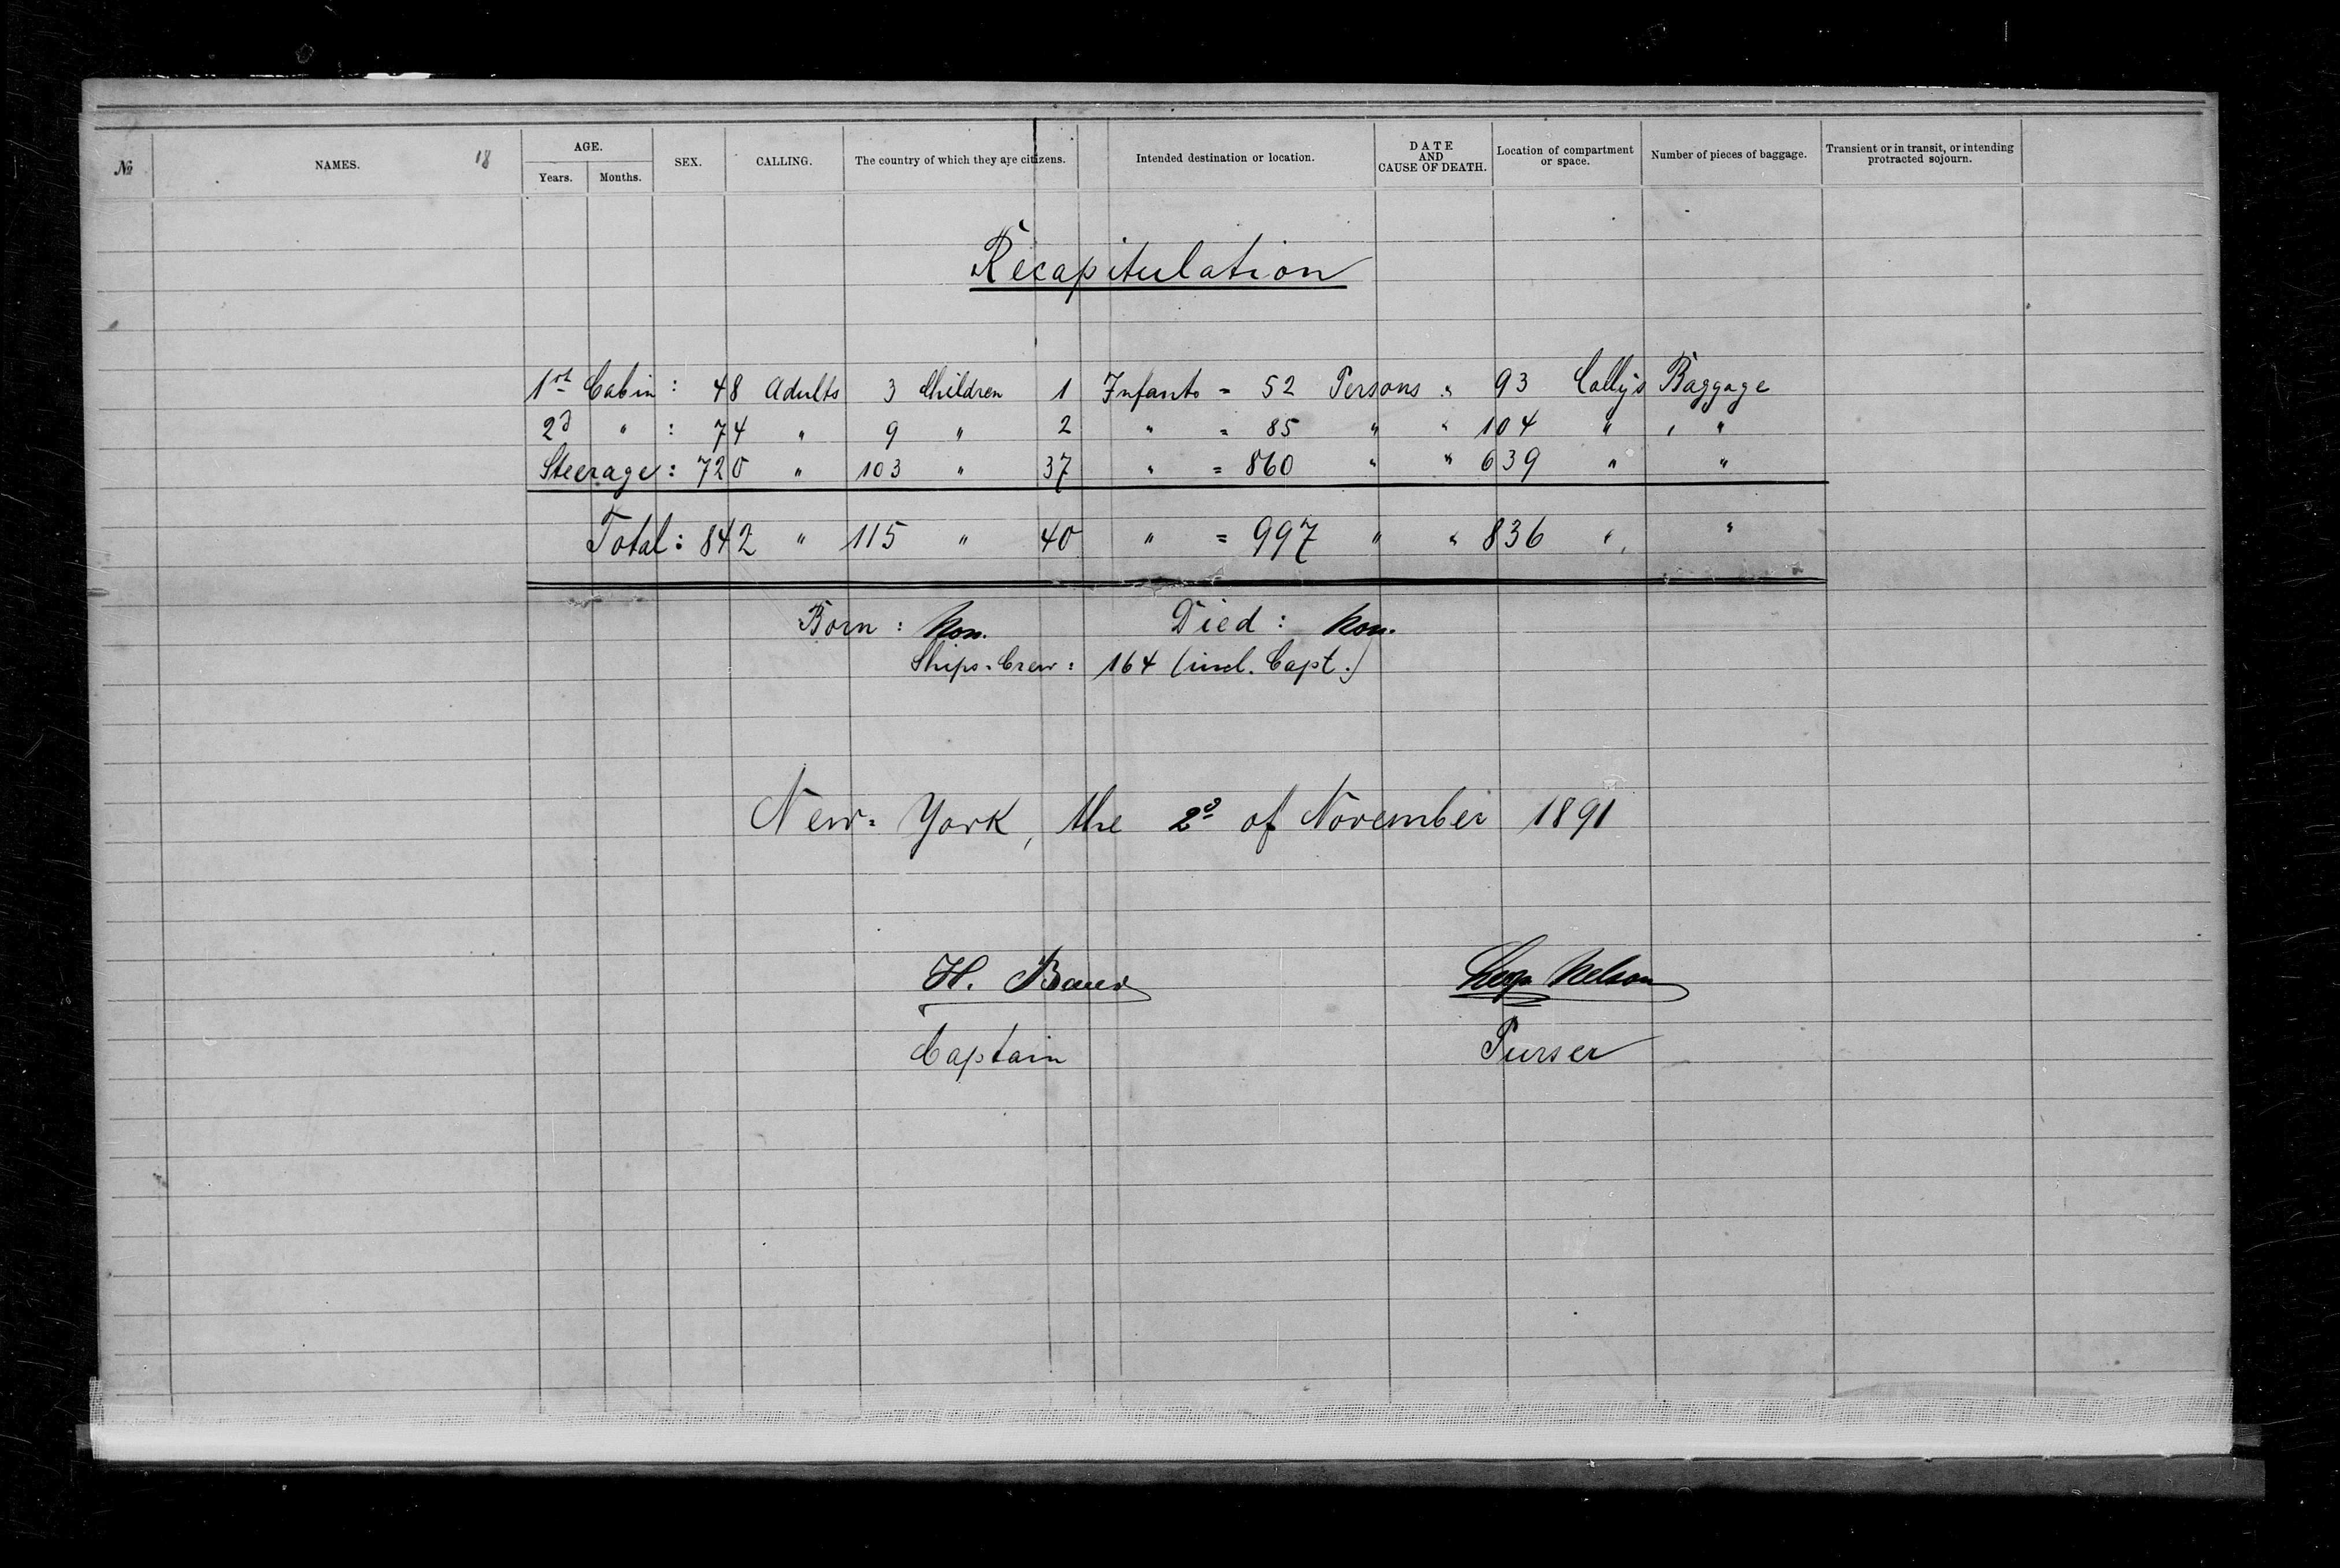 № NAMES. 18 AGE. Years. Months. SEX. CALLING. The country of which they are citizens. Intended destination or location. DATE AND CAUSE OF DEATH. Location of compartment or space. Number of pieces of baggage. Transient or in transit, or intending protracted sojourn.
Recapitulation
1st Cabin : 48 Adults 3 Children 1 Infants = 52 Persons " 93 Collys Baggage
2d " : 74 " 9 " 2 " = 85 " " 104 " "
Steerage : 720 " 103 " 37 " = 860 " " 639 " "
Total : 842 " 115 " 40 " = 997 " " 836 " "
Born : Non. Died : Non.
Ships-Crew : 164 (incl. Capt.)
New-York, the 2d of November 1891
H. Bauer Hugo Nelson
Captain Purser